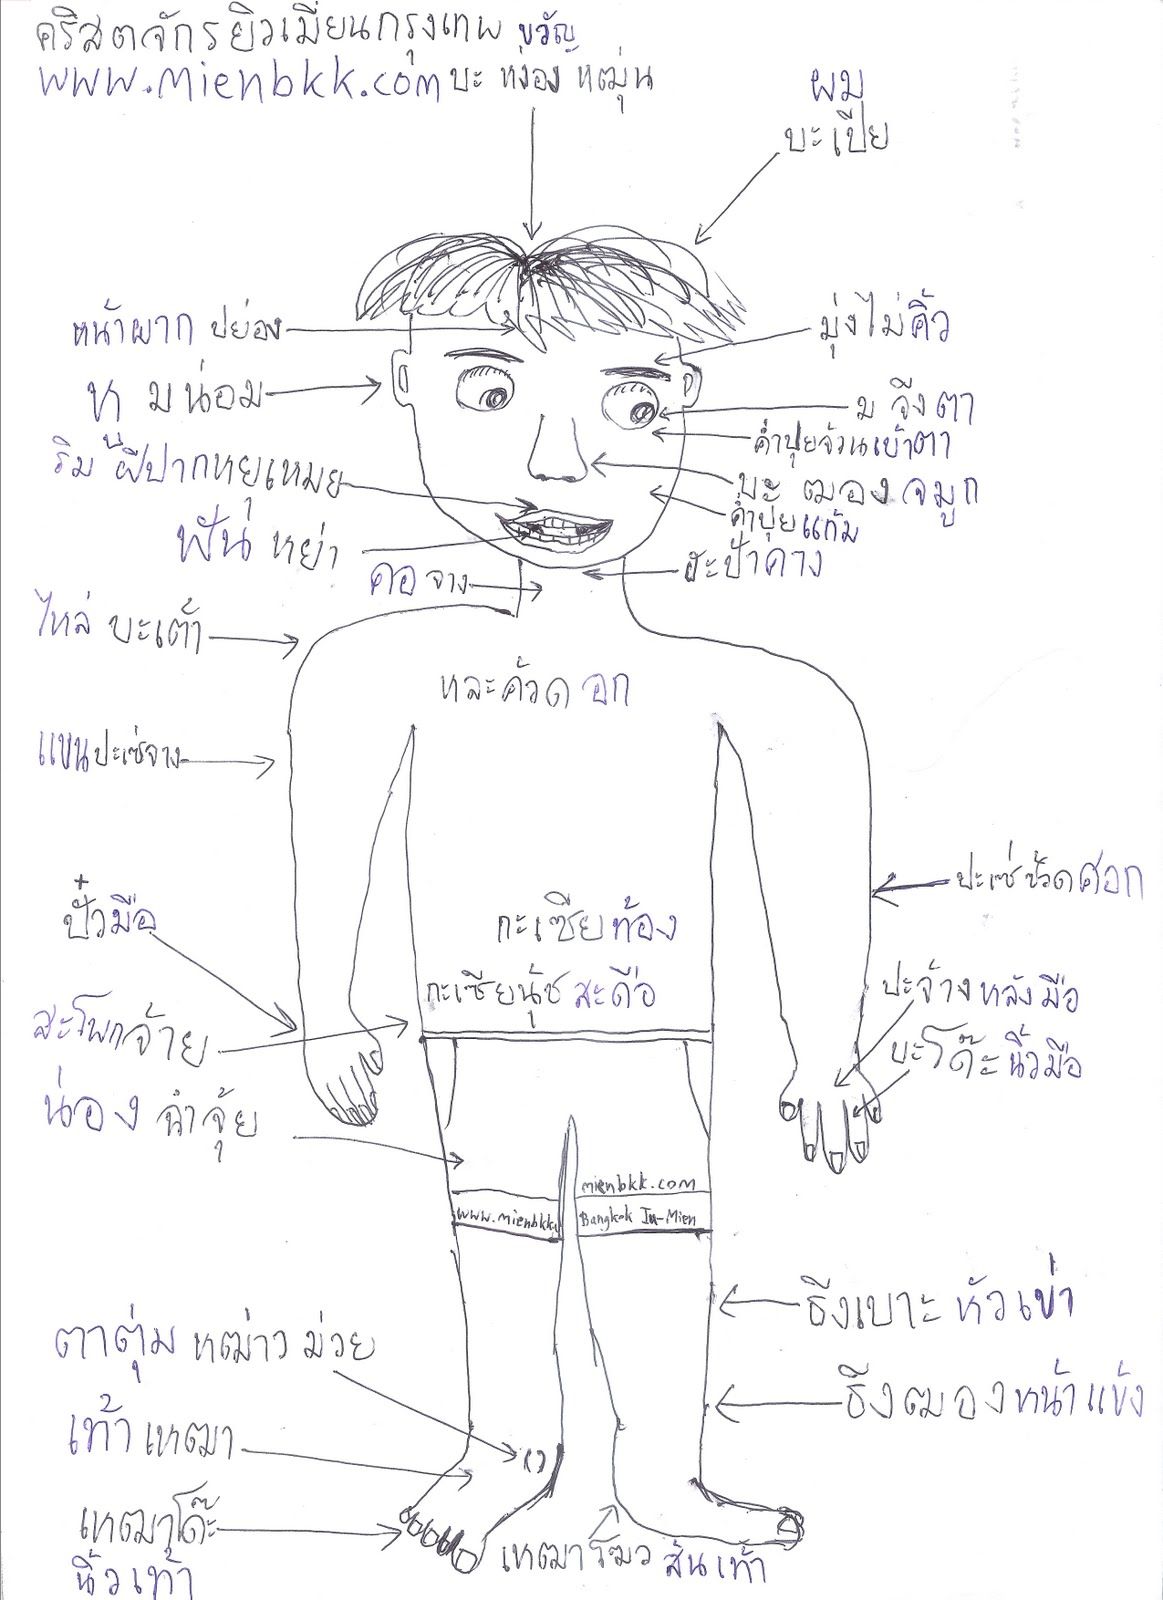 คริสตจักรยิวเมี่ยนกรุงเทพ ขวัญ
www.mienbkk.com บะ หง่อง หฒุ่น
ผม
บะเปีย
หน้าผาก ปย่อง
มุ่งไม่คิ้ว
หู มน่อม
ม จีง ตา
ค่ำปุยจ้วนเบ้าตา
ริมฝีปากหยุเหมย
บะ ฒอง จมูก
ค่ำปุย แก้ม
ฟัน หย่า
สะป้าคาง
คอ จาง
ไหล่ บะเต้า
หละค้วด อก
แขนปะเซ่จาง
ปะเซ่ช้วดศอก
ปั๋วมือ
กะเซียท้อง
กะเซียนุ้ช สะดือ
ปะจ้างหลังมือ
สะโพกจ้าย
บะโด๊ะนิ้วมือ
น่อง ฉำจุ้ย
mienbkk.com
www.mienbkk
Bangkok Iu-Mien
ธิงเบาะ หัวเข่า
ตาตุ่ม หฒ่าว ม่วย
ธิงฒองหน้าแข้ง
เท้า เหฒา
เหฒาโด๊ะ
นิ้วเท้า
เหฒาโฆว ส้นเท้า